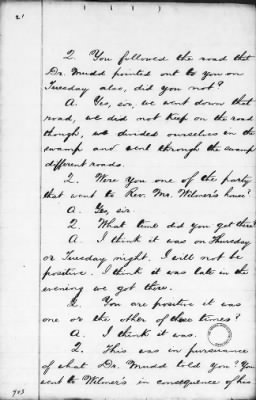 2'
Q. You followed the road that
Dr. Mudd pointed out to you on
Tuesday also, did you not?
A. Yes, sir, we went down that
road, we did not keep on the road
though, we divided ourselves in the
swamp and went through the swamp
different roads.
Q. Were you one of the party
that went to Rev. Mr. Wilmer's house?
A. Yes, sir.
Q. What time did you get there?
A. I think it was on Thursday
or Tuesday night. I will not be
positive. I think it was late in the
evening we got there.
Q. You are positive it was
one or the other of those times?
A. I think it was.
Q. This was in pursuance
of what Dr. Mudd told you? You
went to Wilmer's in consequence of his